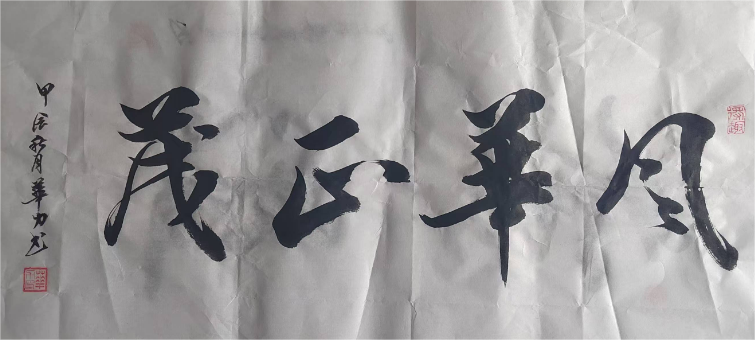 風華正茂
甲辰秋月華力书